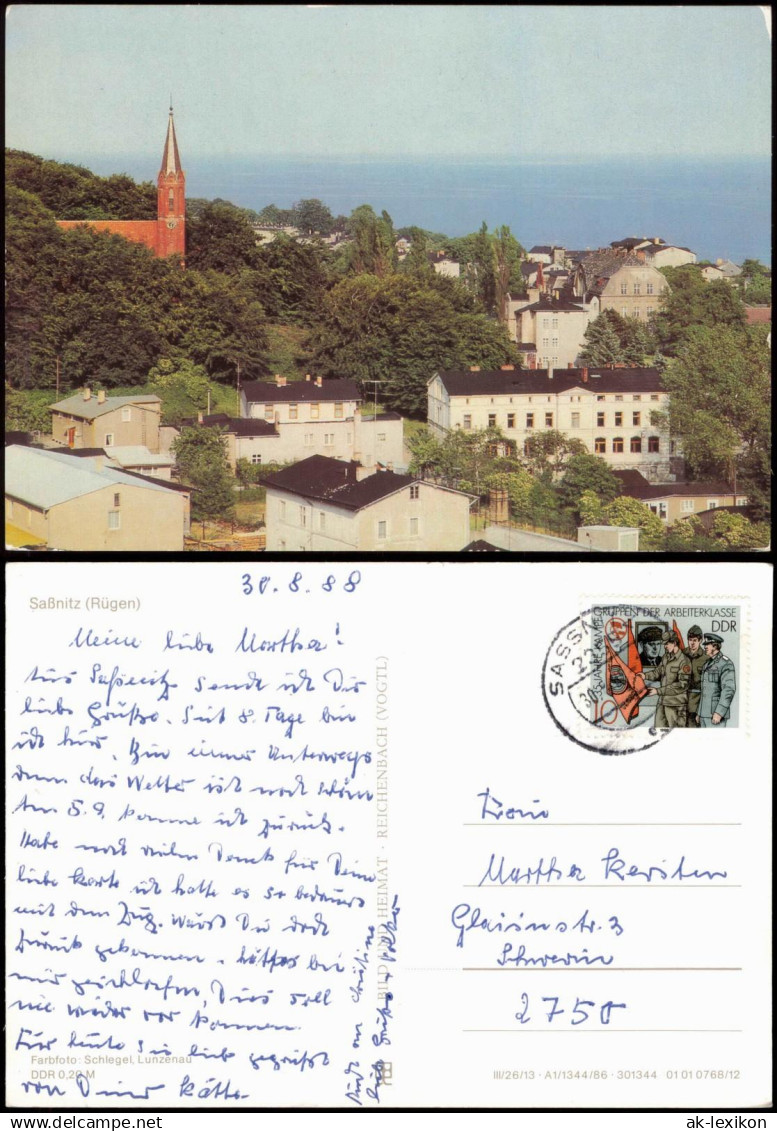 30.8.88
Saßnitz (Rügen)
Meine liebe Martha!
Aus Saßnitz sende ich Dir
liebe Grüße. Seit 8 Tage bin
ich hier. Bin immer Unterwegs
denn das Wetter ist noch schön
Am 5.9. komme ich zurück.
Habe noch vielen Dank für Deine
liebe Karte ich hatte es so bedauert
mit dem Zug. Wärst Du doch
zurück gekommen hättest bei
mir geschlafen, Dies soll
nie wieder vor kommen.
Für heute sei lieb gegrüßt
von Deiner Käthe.
Farbfoto: Schlegel, Lunzenau
DDR 0,20 M
BILD UND HEIMAT · REICHENBACH (VOGTL)
Auch an Christine
liebe Grüße
GRUPPEN DER ARBEITERKLASSE
DDR
10
SASSN
Frau
Martha Kersten
Glaisinstr. 3
Schwerin
2750
III/26/13 · A1/1344/86 · 301344 01 01 0768/12
ak-lexikon
© ak-lexikon.com